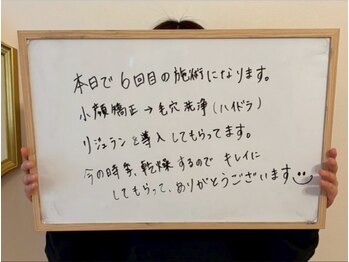 本日で6回目の施術になります。
小顔矯正→毛穴洗浄(ハイドラ)
リジュランを導入してもらってます。
今の時季、乾燥するので キレイに
してもらって、ありがとうございます